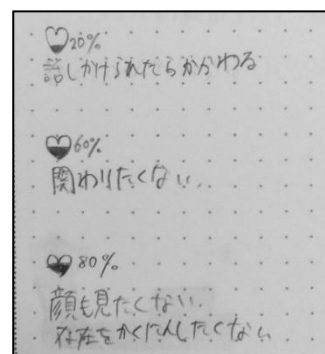 20%
話しかけられたらかかわる
60%
関わりたくない
80%
顔も見たくない
存在をかくにんしたくない